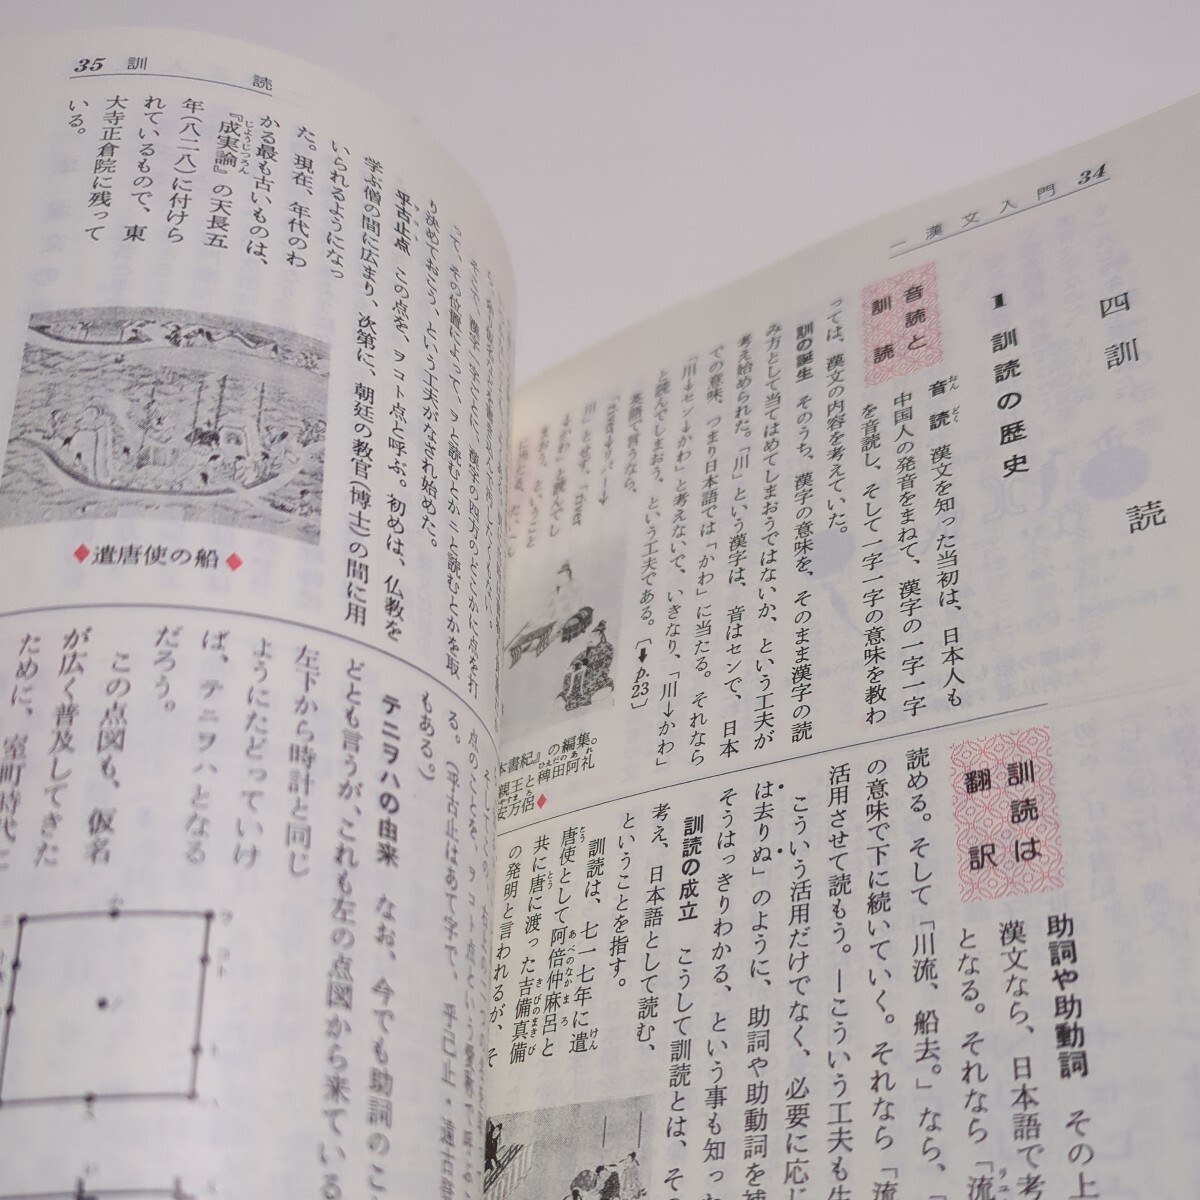 34
一 漢文入門
四 訓読
1 訓読の歴史
音読と
訓読
音読 漢文を知った当初は、日本人も
中国人の発音をまねて、漢字の一字一字
を音読し、そして一字一字の意味を教わ
っては、漢文の内容を考えていた。
訓の誕生 そのうち、漢字の意味を、そのまま漢字の読
み方として当てはめてしまおうではないか、という工夫が
考え始められた。「川」という漢字は、音はセンで、日本
での意味、つまり日本語では「かわ」に当たる。それなら
「川→セン→かわ」と考えないで、いきなり、「川→かわ」
と読んでしまおう、という工夫である。〔➡p.23〕
英語で言うなら、
本書紀』の編集。
親王と稗田阿礼
安万侶◆
訓読は
翻訳
助詞や助動詞 その上
漢文なら、日本語で考
となる。それなら「流
読める。そして「川流、船去。」なら、
の意味で下に続いていく。それなら「流
活用させて読もう。―こういう工夫も生
こういう活用だけでなく、必要に応じ
は去りぬ」のように、助詞や助動詞を補
そうはっきりわかる、という事も知った
訓読の成立 こうして訓読とは、その
考え、日本語として読む、
ということを指す。
訓読は、七一七年に遣
唐使として阿倍仲麻呂と
共に唐に渡った吉備真備
の発明と言われるが、そ
35 訓読
って、その位置によって、ヲと読むとかニと読むとかを取
り決めておこう、という工夫がなされ始めた。
乎古止点 この点を、ヲコト点と呼ぶ。初めは、仏教を
学ぶ僧の間に広まり、次第に、朝廷の教官(博士)の間に用
いられるようになっ
た。現在、年代のわ
かる最も古いものは、
『成実論』の天長五
年(八二八)に付けら
れているもので、東
大寺正倉院に残って
いる。
◆遣唐使の船◆
もある。)
テニヲハの由来 なお、今でも助詞のこ
どとも言うが、これも左の点図から来ている
左下から時計と同じ
ようにたどっていけ
ば、テニヲハとなる
だろう。
この点図も、仮名
が広く普及してきた
ために、室町時代に